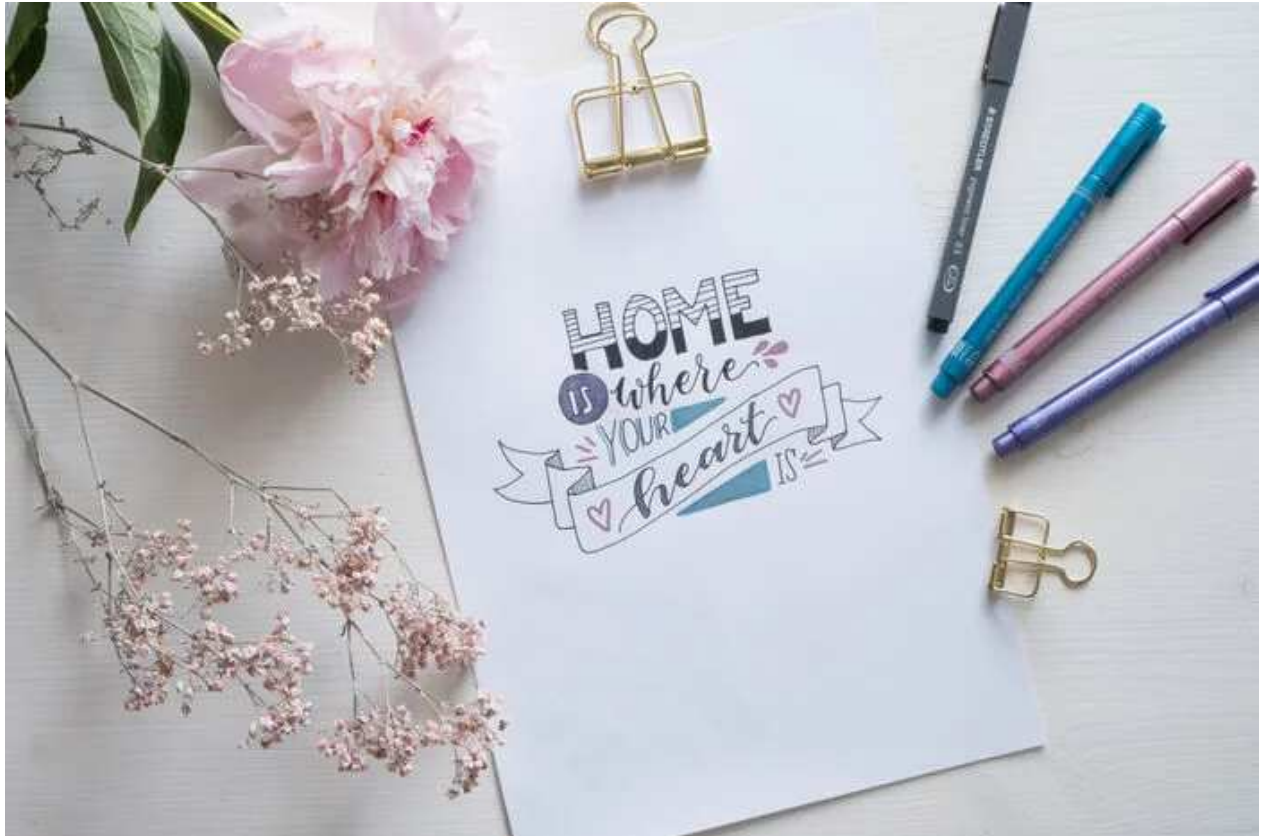 HOME
IS where
YOUR
heart
IS
STAEDTLER pigment liner